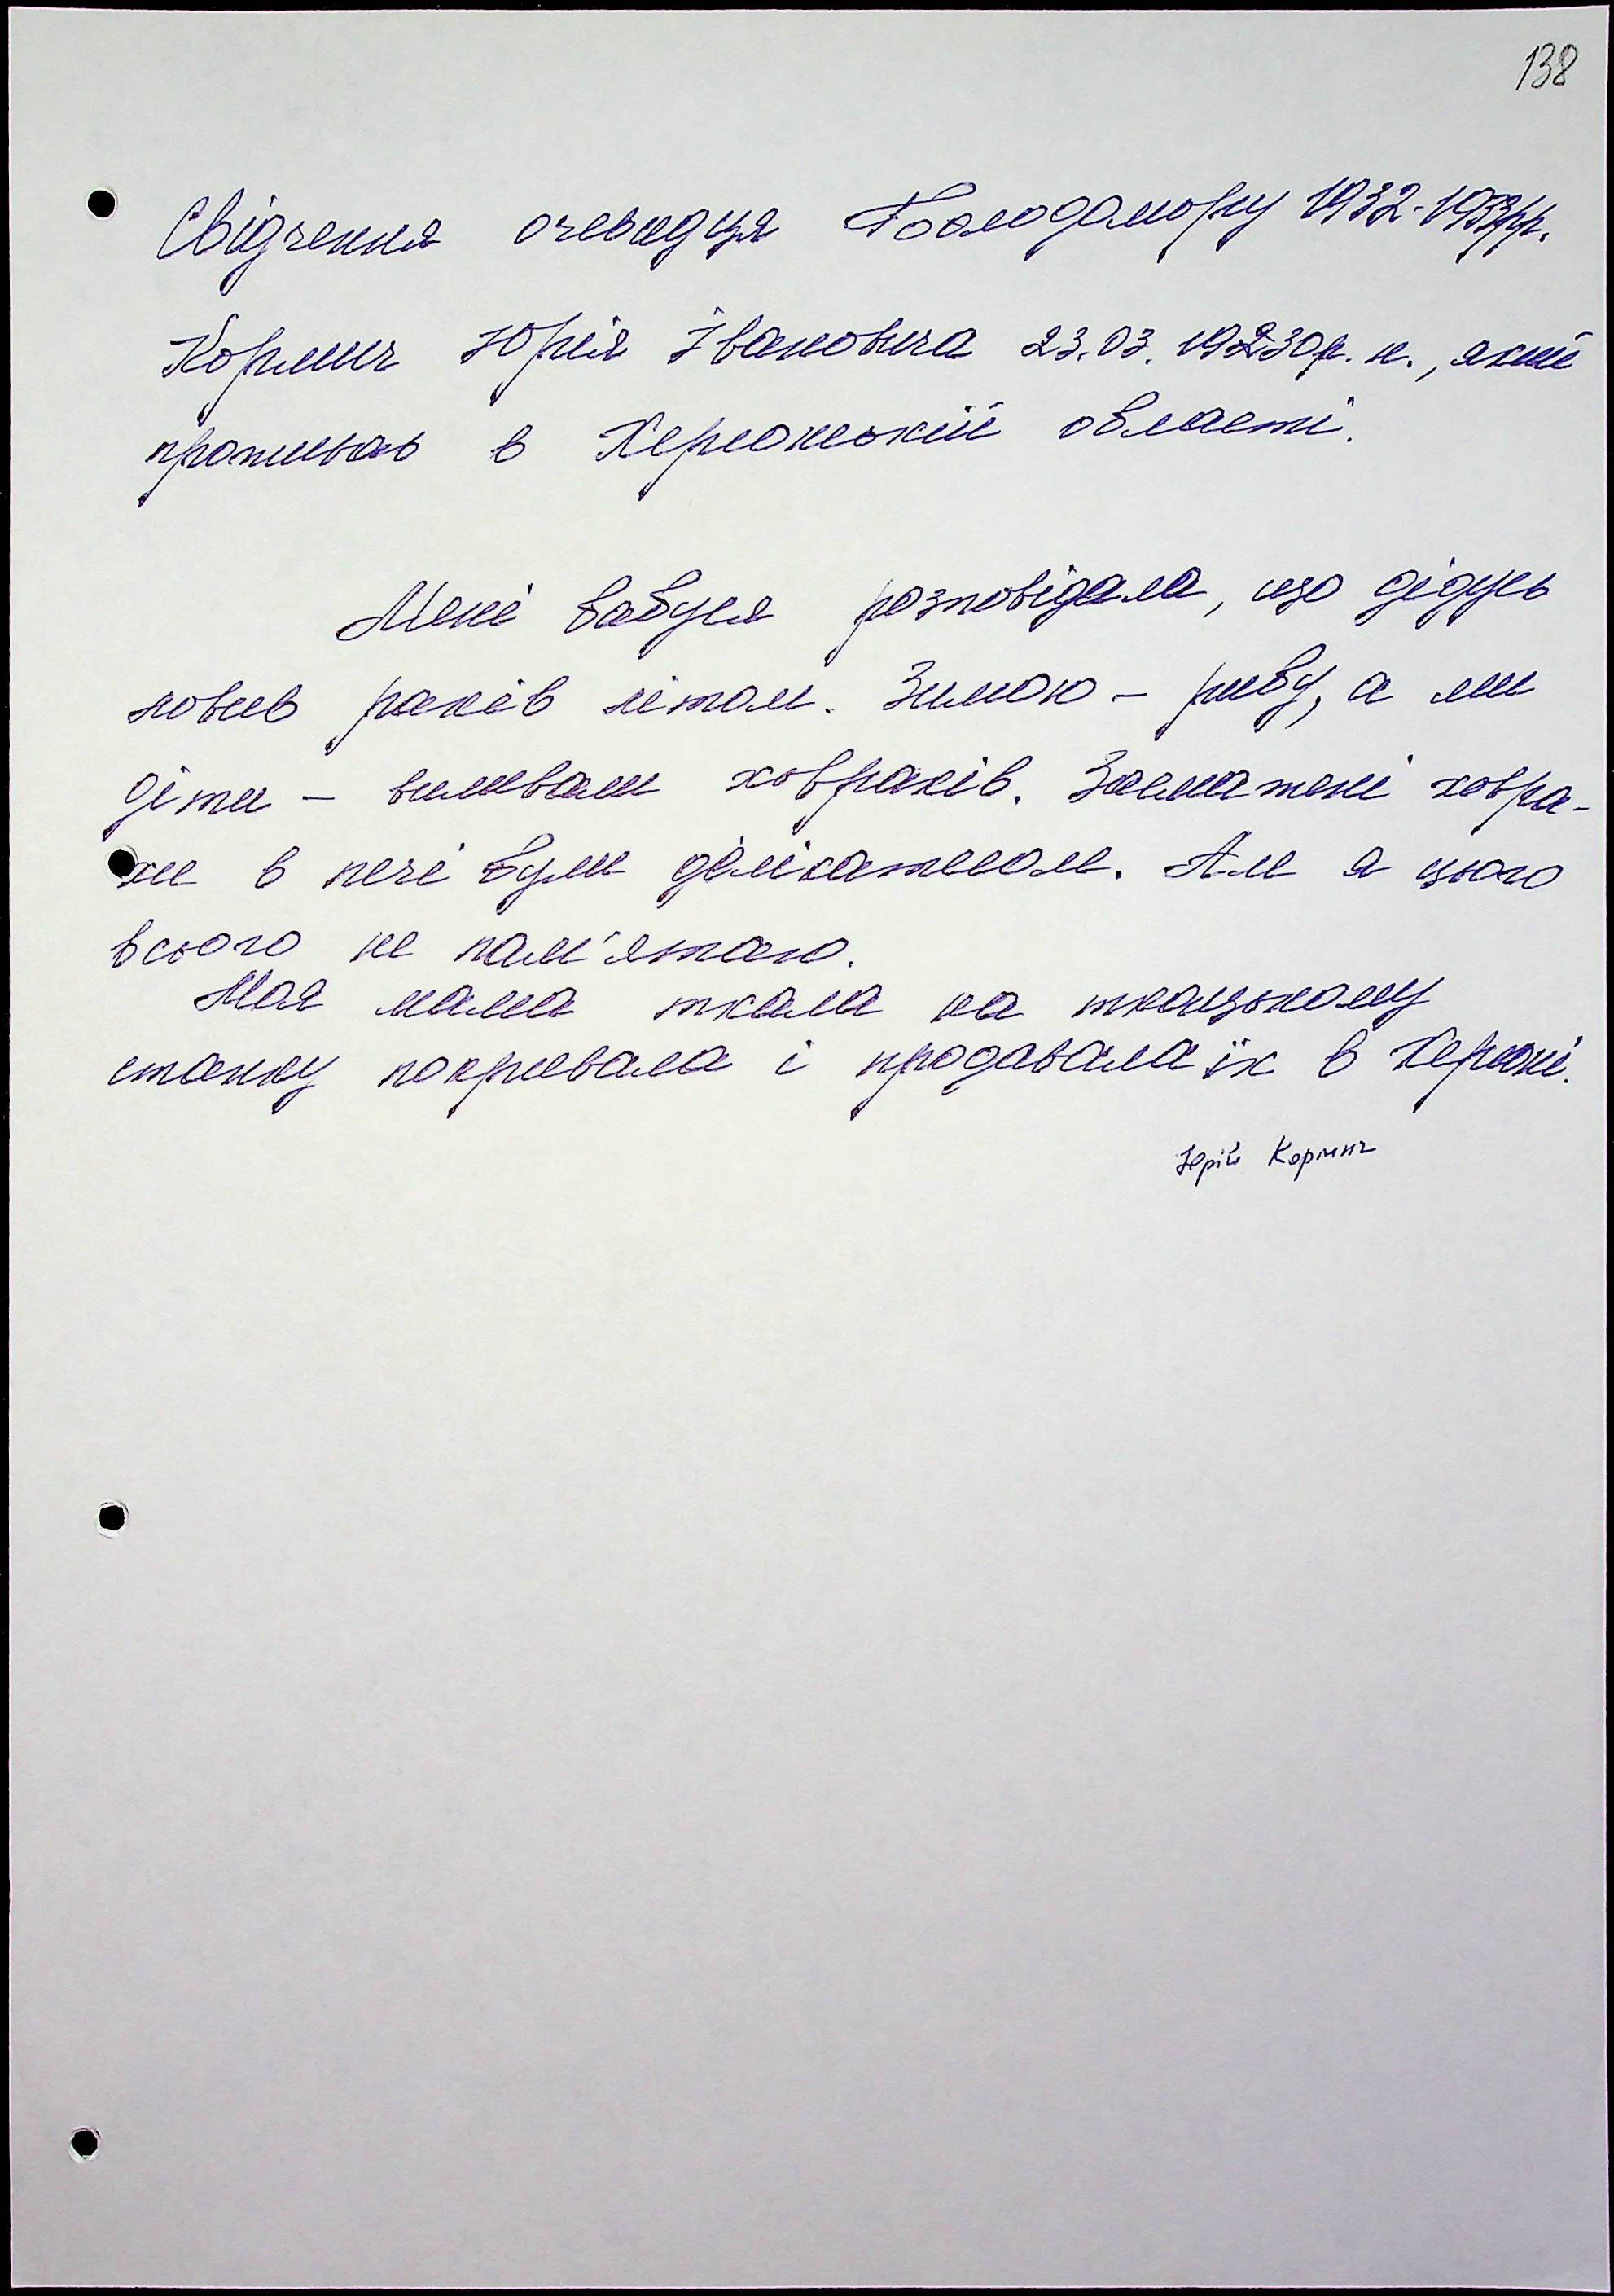 138
Свідчення очевидця Голодомору 1932-1933рр.
Кормич Юрія Івановича 23.03.1930р.н., який
проживав в Херсонській області.
Мені бабуся розповідала, що дідусь
ловив раків літом. Зимою – рибу, а ми
діти – виливали ховрахів. Засмажені ховра-
хи в печі були делікатесом. Але я цього
всього не пам'ятаю.
Моя мама ткала на ткацькому
станку покривала і продавала їх в Херсоні.
Юрій Кормич